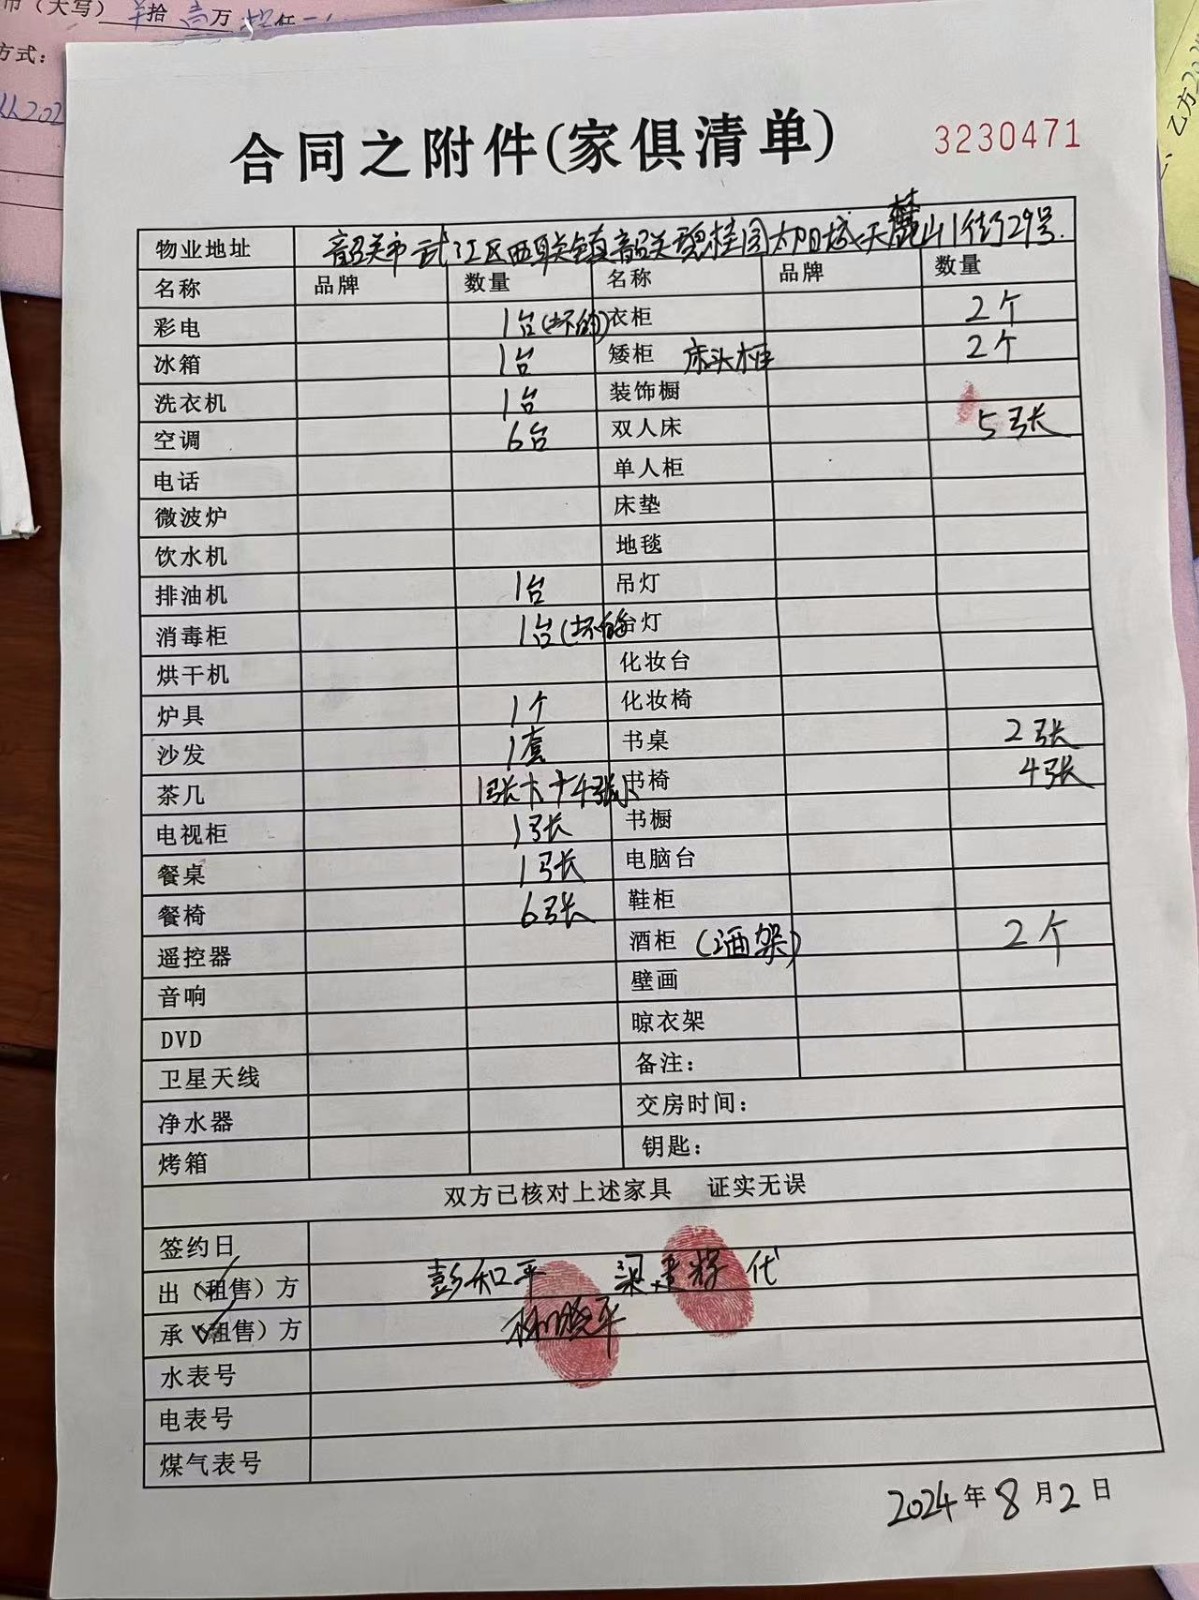 币（大写）
拾
万
方式：
乙方
合同之附件(家俱清单)
3230471
物业地址 韶关市武江区西联镇韶关碧桂园太阳城天麓山1街29号.
名称 品牌 数量 名称 品牌 数量
彩电 1台(坏的) 衣柜 2个
冰箱 1台 矮柜 床头柜 2个
洗衣机 1台 装饰橱
空调 6台 双人床 5张
电话 单人柜
微波炉 床垫
饮水机 地毯
排油机 1台 吊灯
消毒柜 1台(坏的 台灯
烘干机 化妆台
炉具 1个 化妆椅
沙发 1套 书桌 2张
茶几 1张大+4张小 书椅 4张
电视柜 1张 书橱
餐桌 1张 电脑台
餐椅 6张 鞋柜
遥控器 酒柜 (酒架) 2个
音响 壁画
DVD 晾衣架
卫星天线 备注：
净水器 交房时间：
烤箱 钥匙：
双方已核对上述家具 证实无误
签约日
出（租售）方 彭和平 梁 代
承（租售）方
水表号
电表号
煤气表号
2024年8月2日